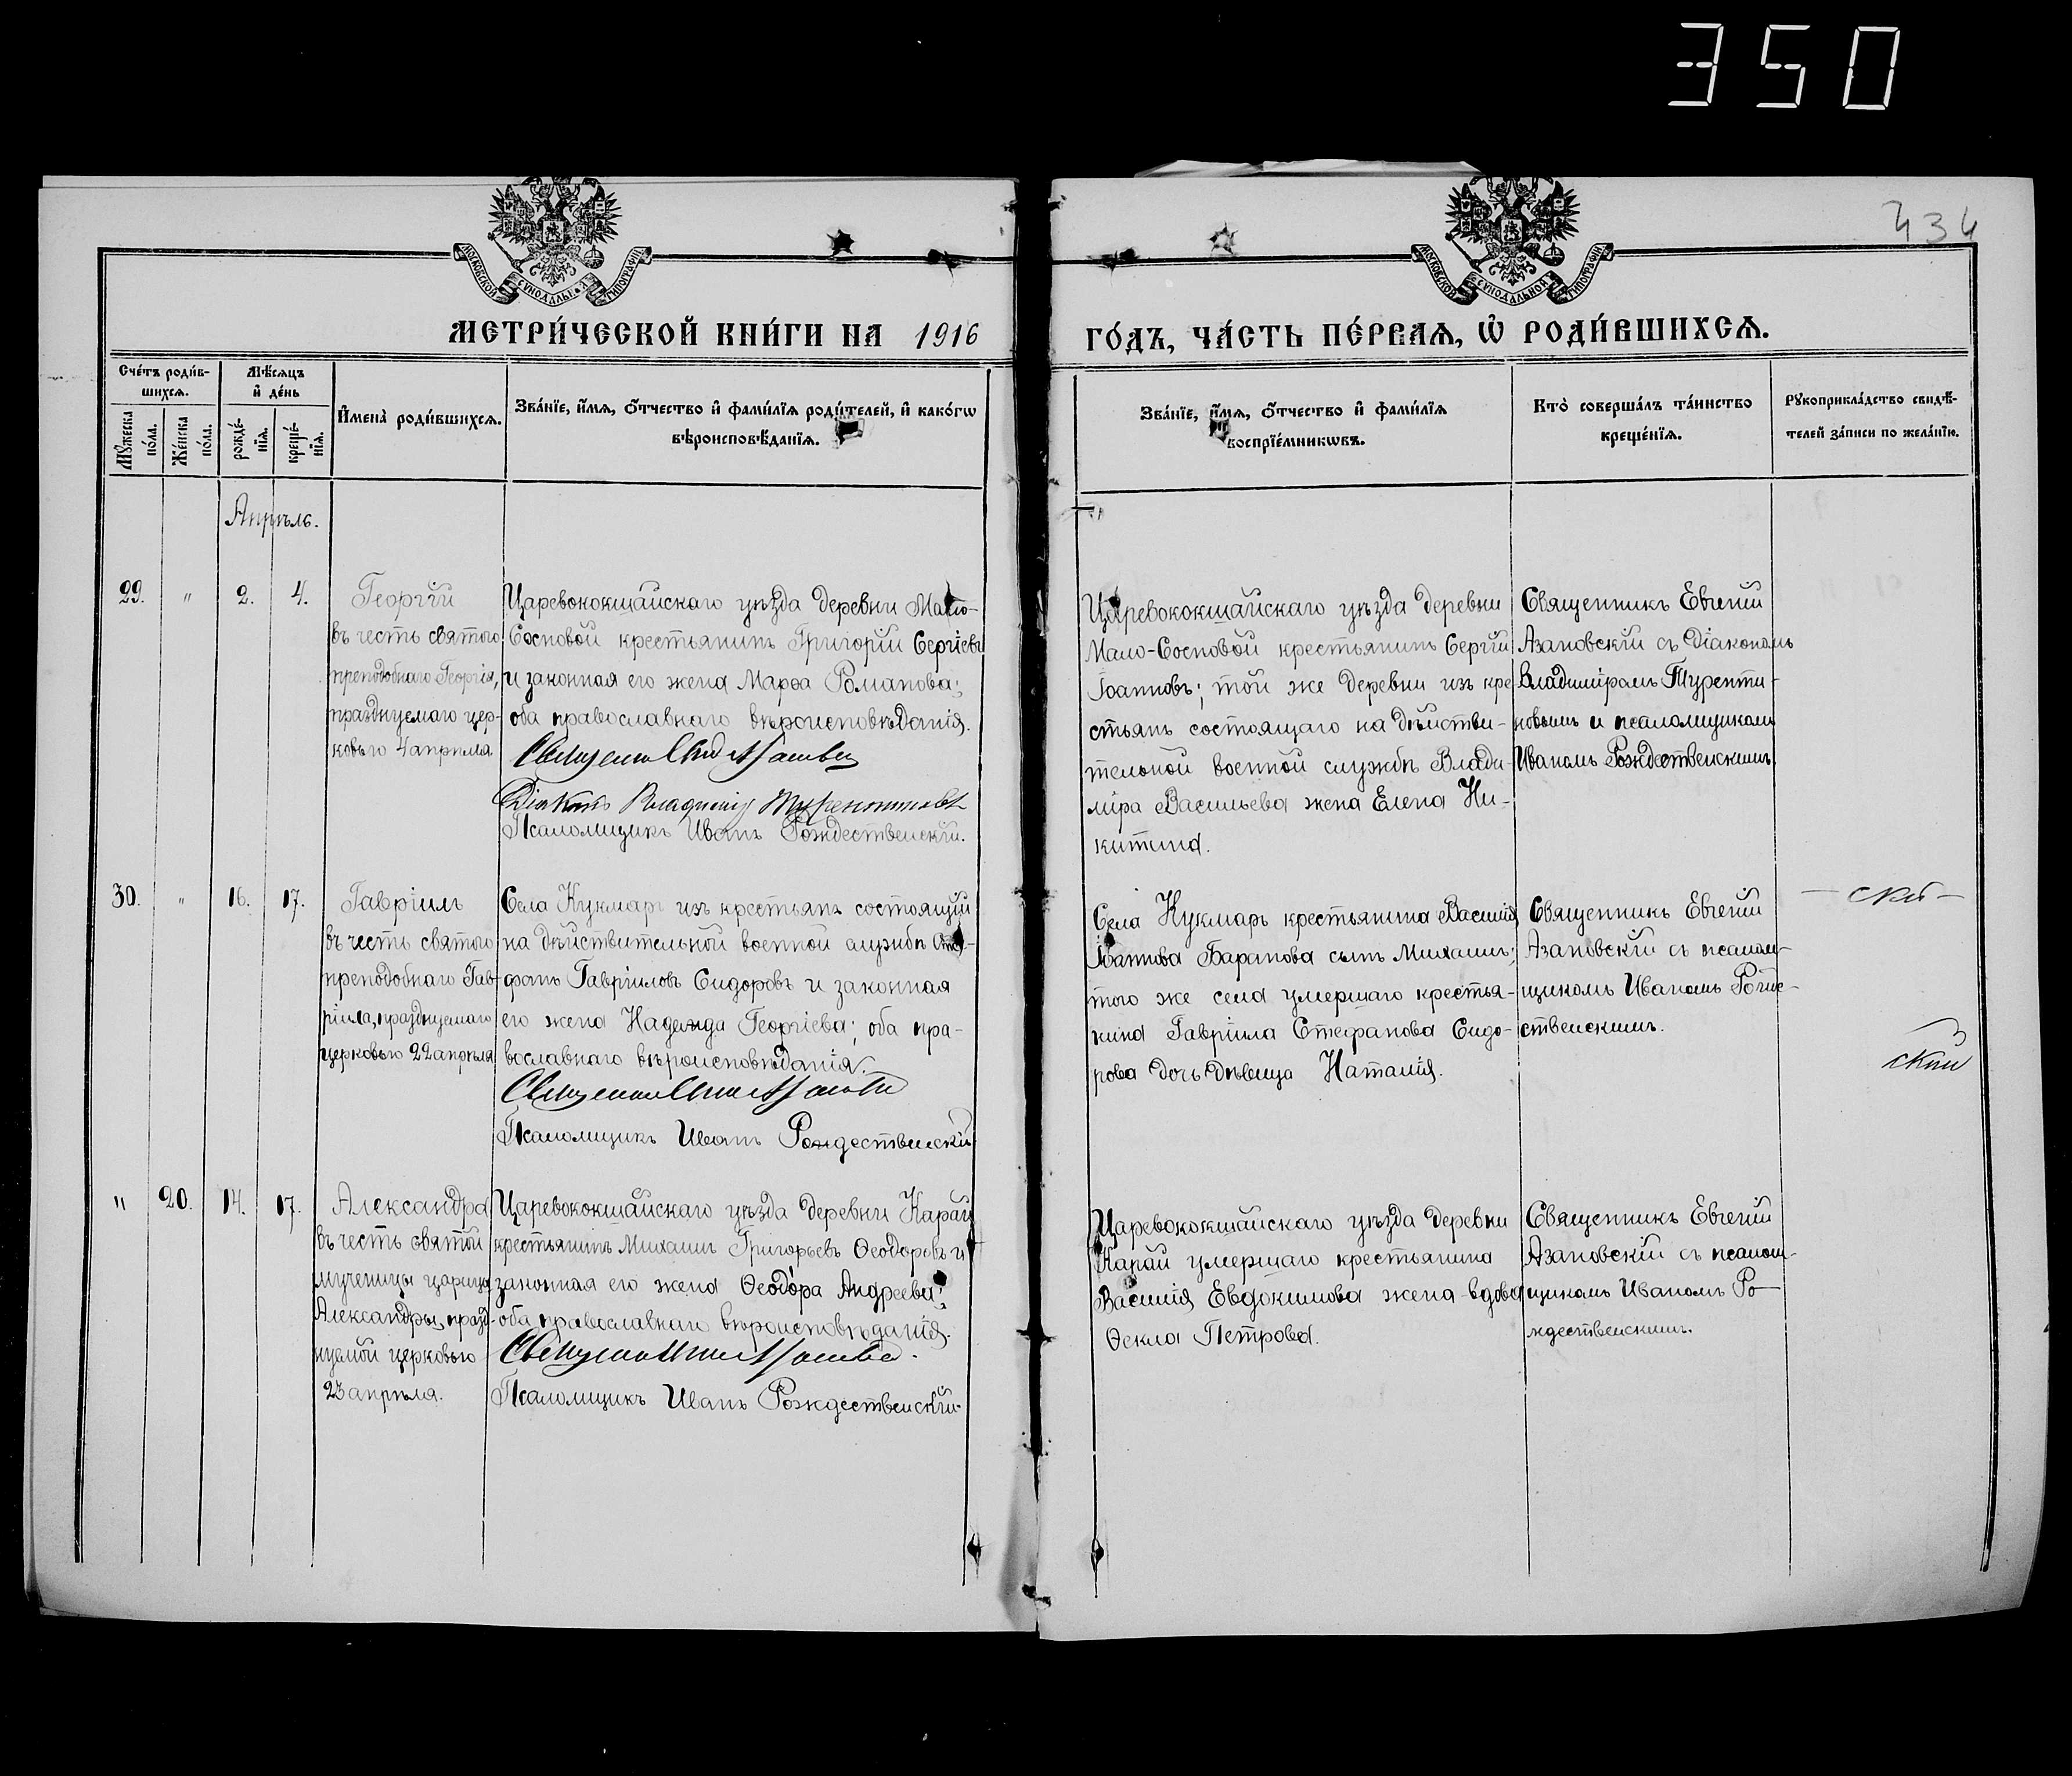 350
434
МОСКОВСКОЙ СѴНОДАЛЬНОЙ ТИПОГРАФІИ
МОСКОВСКОЙ СѴНОДАЛЬНОЙ ТИПОГРАФІИ
МЕТРИ́ЧЕСКОЙ КНИ́ГИ НА 1916 ГО́ДЪ, ЧА́СТЬ ПЕ́РВАѦ, Ѡ РОДИ́ВШИХСѦ.
Сче́тъ роди́в-
шихсѧ.
Мꙋ́жеска по́ла.
Же́нска по́ла.
Мѣ́сѧцъ
и҆ де́нь
рожде́-
нїѧ.
креще́-
нїѧ.
И҆мена̀ роди́вшихсѧ.
Зва́нїе, и҆́мѧ, ѻ҆́тчество и҆ фами́лїѧ роди́телей, и҆ како́гѡ
вѣроисповѣ́данїѧ.
Зва́нїе, и҆́мѧ, ѻ҆́тчество и҆ фами́лїѧ
воспрїе́мникѡвъ.
Кто̀ соверша́лъ та́инство
креще́нїѧ.
Рꙋкоприкла́дство свидѣ́-
телей за́писи по жела́нїю.
Апрѣль.
29. " 2. 4.
Георгій
въ честь святого
преподобнаго Георгія,
празднуемаго цер-
ковью 4 апрѣля
Царевококшайскаго уѣзда деревни Мало-
Сосновой крестьянинъ Григорій Сергіевъ
и законная его жена Марѳа Романова;
оба православнаго вѣроисповѣданія.
Священникъ
Діаконъ Владиміръ Турентиновъ
Псаломщикъ Иванъ Рождественскій.
Царевококшайскаго уѣзда деревни
Мало-Сосновой крестьянинъ Сергій
Іоанновъ; той же деревни изъ кре
стьянъ состоящаго на дѣйстви-
тельной военной службѣ Влади-
міра Васильева жена Елена Ни-
китина.
Священникъ Евгеній
Азановскій съ діакономъ
Владиміромъ Туренти-
новымъ и псаломщикомъ
Иваномъ Рождественскимъ.
30. " 16. 17.
Гавріилъ
въ честь святого
преподобнаго Гав-
ріила, празднуемаго
церковью 22 апрѣля
Села Кукмаръ изъ крестьянъ состоящій
на дѣйствительной военной службѣ Сте-
фанъ Гавріиловъ Сидоровъ и законная
его жена Надежда Георгіева; оба пра-
вославнаго вѣроисповѣданія.
Священникъ
Псаломщикъ Иванъ Рождественскій
Села Кукмаръ крестьянина Василія
Іоаннова Баранова сынъ Михаилъ;
того же села умершаго крестья-
нина Гавріила Стефанова Сидо-
рова дочь дѣвица Наталія.
Священникъ Евгеній
Азановскій съ псалом-
щикомъ Иваномъ Рожде-
ственскимъ.
скій
" 20. 14. 17.
Александра
въ честь святой
мученицы царицы
Александры, празд-
нуемой церковью
23 апрѣля.
Царевококшайскаго уѣзда деревни Карай
крестьянинъ Михаилъ Григорьевъ Ѳеодоровъ и
законная его жена Ѳеодора Андреева;
оба православнаго вѣроисповѣданія.
Священникъ
Псаломщикъ Иванъ Рождественскій.
Царевококшайскаго уѣзда деревни
Карай умершаго крестьянина
Василія Евдокимова жена-вдова
Ѳекла Петрова.
Священникъ Евгеній
Азановскій съ псалом-
щикомъ Иваномъ Ро-
ждественскимъ.